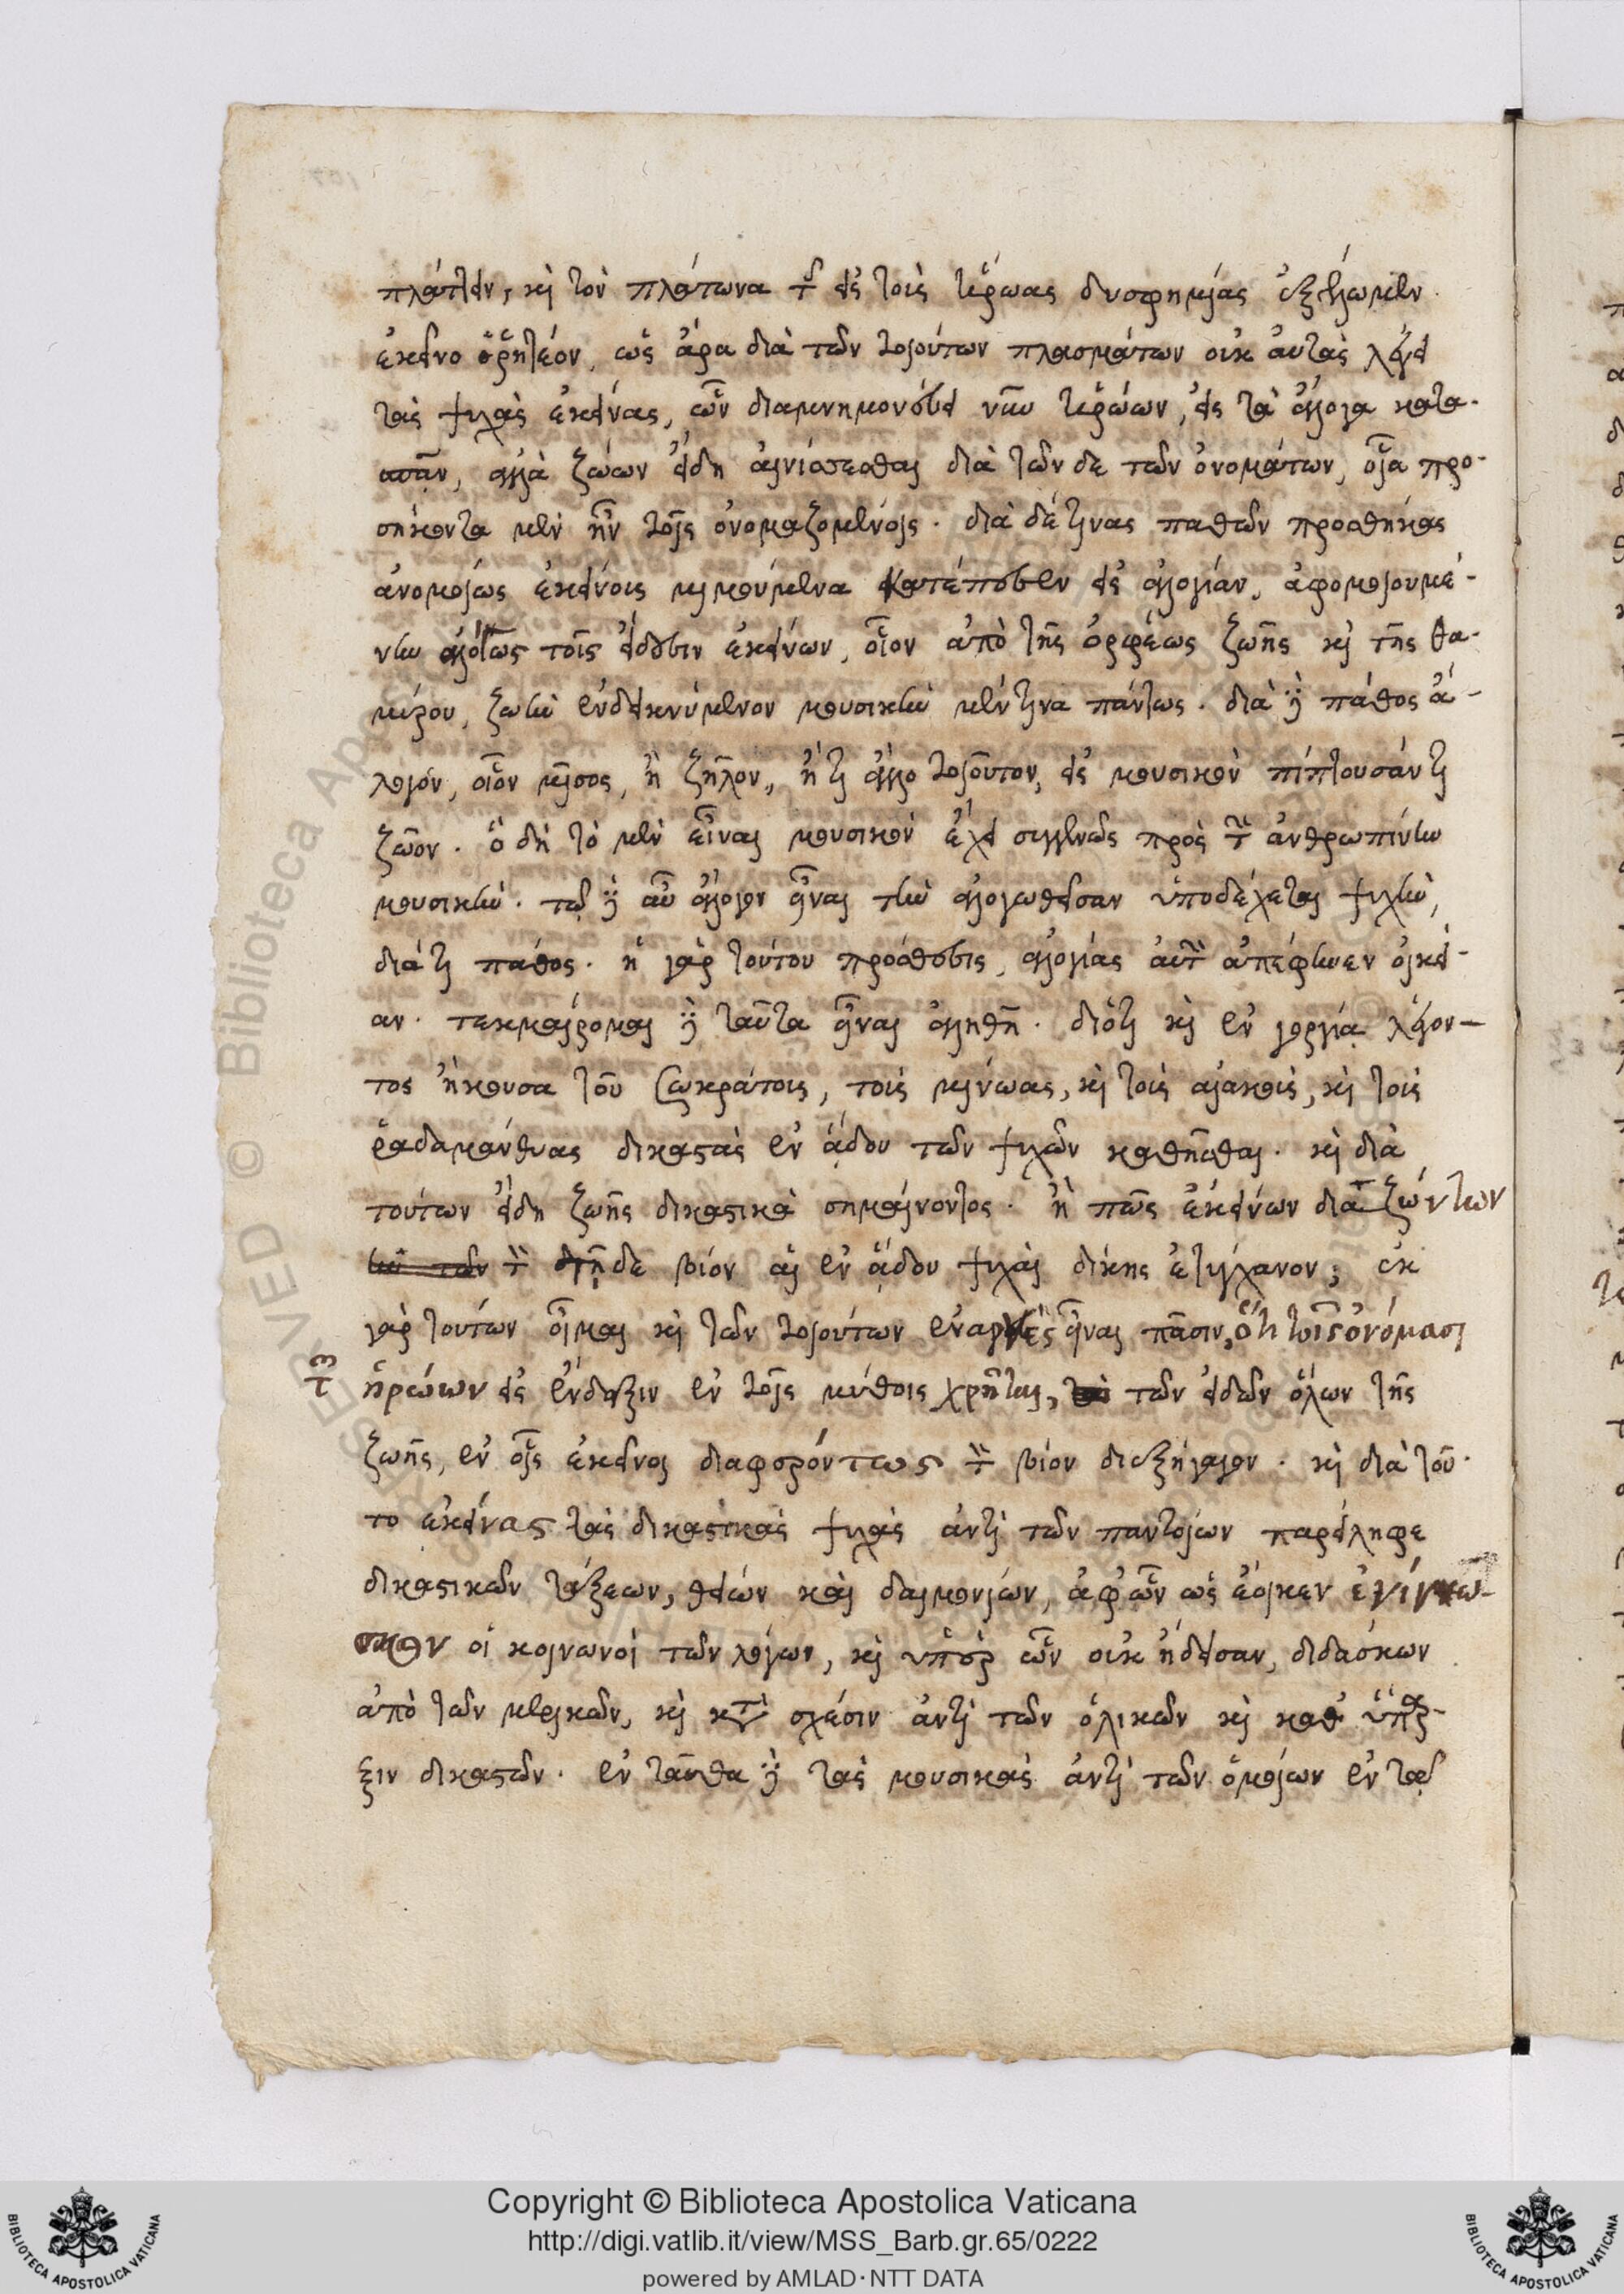 πλάττειν, καὶ τὸν πλάτωνα τῆς εἰς τοὺς ἥρωας δυσφημίας ἐξέλωμεν.
ἐκεῖνο ῥητέον, ὡς ἄρα διὰ τῶν τοιούτων πλασμάτων οὐκ αὐτὰς λέγει
τὰς ψυχὰς ἐκείνας, ὧν διαμνημονεύει νῦν ἡρώων, εἰς τὰ ἄλογα κατα-
σπᾶν, ἀλλὰ ζώων εἴδη αἰνίσσεσθαι διὰ τῶνδε τῶν ὀνομάτων, οἷα προ-
σήκοντα μὲν ἦν τοῖς ὀνομαζομένοις. διὰ δέ τινας παθῶν προσθήκας
ἀνομοίως ἐκείνοις μιμούμενα κατέπεσεν εἰς ἀλογίαν, ἀφομοιουμέ-
νην ἀλόγως τοῖς εἴδεσιν ἐκείνων, οἷον ἀπὸ τῆς ὀρφέως ζωῆς καὶ τῆς θα-
μύρου, ζωὴν ἐνδεικνύμενον μουσικὴν μέν τινα πάντως. διὰ δὲ πάθος ἄ-
λογόν, οἷον μῖσος, ἢ ζῆλον, ἤ τι ἄλλο τοιοῦτον, εἰς μουσικὸν πίπτουσάν τι
ζῶον. ὃ δὴ τὸ μὲν εἶναι μουσικὸν ἔχει συγγενῶς πρὸς τὴν ἀνθρωπίνην
μουσικήν. τῷ δὲ αὖ ἄλογον εἶναι τὴν ἀλογωθεῖσαν ὑποδέχεται ψυχὴν,
διά τι πάθος. ἡ γὰρ τούτου πρόσθεσις, ἀλογίας αὐτὴν ἀπέφηνεν οἰκεί-
αν. τεκμαίρομαι δὲ ταῦτα εἶναι ἀληθῆ. διότι καὶ ἐν γοργίᾳ λέγον-
τος ἤκουσα τοῦ Σωκράτους, τοὺς μίνωας, καὶ τοὺς αἰακοὺς, καὶ τοὺς
ῥαδαμάνθυας δικαστὰς ἐν ᾅδου τῶν ψυχῶν καθῆσθαι. καὶ διὰ
τούτων εἴδη ζωῆς δικαστικὰ σημαίνοντος. ἢ πῶς ἐκείνων διαζώντων
τὸν τῇδε βίον αἱ ἐν ᾅδου ψυχαὶ δίκης ἐτύγχανον; ἐκ
γὰρ τούτων οἶμαι καὶ τῶν τοιούτων ἐναργὲς εἶναι πᾶσιν, ὅτι τοῖς ὀνόμασι
τῶν ἡρώων εἰς ἔνδειξιν ἐν τοῖς μύθοις χρῆται, τῶν εἰδῶν ὅλων τῆς
ζωῆς, ἐν οἷς ἐκεῖνοι διαφερόντως τὸν βίον διεξήγαγον. καὶ διὰ τοῦ-
το ἐκείνας τὰς δικαστικὰς ψυχὰς ἀντὶ τῶν παντοίων παρείληφε
δικαστικῶν τάξεων, θείων καὶ δαιμονίων, ἀφ' ὧν ὡς ἔοικεν ἐγίνω-
σκον οἱ κοινωνοὶ τῶν λόγων, καὶ ὑπὲρ ὧν οὐκ ᾔδεσαν, διδάσκων
ἀπὸ τῶν μερικῶν, καὶ κατὰ σχέσιν ἀντὶ τῶν ὁλικῶν καὶ καθ' ὕπαρ-
ξιν δικαστῶν. ἐνταῦθα δὲ τὰς μουσικὰς ἀντὶ τῶν ὁμοίων ἐν τῷ
Copyright © Biblioteca Apostolica Vaticana
http://digi.vatlib.it/view/MSS_Barb.gr.65/0222
powered by AMLAD · NTT DATA